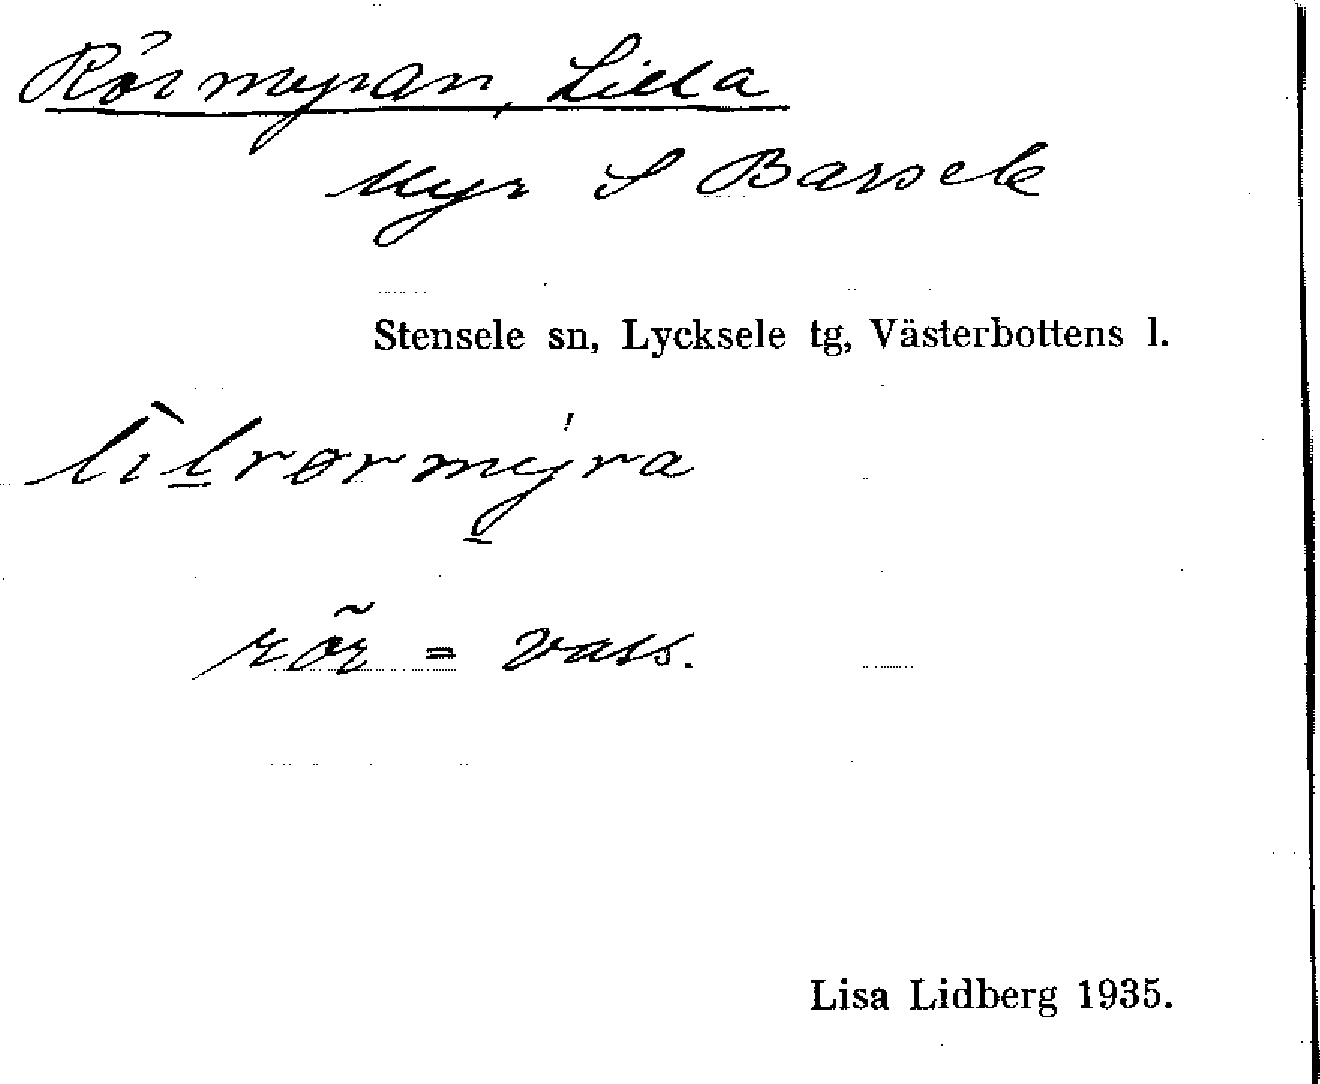 Rörmyran, Lilla
Myr S Barsele
Stensele sn, Lycksele tg, Västerbottens l.
lìlrørmýra
rör = vass.
Lisa Lidberg 1935.